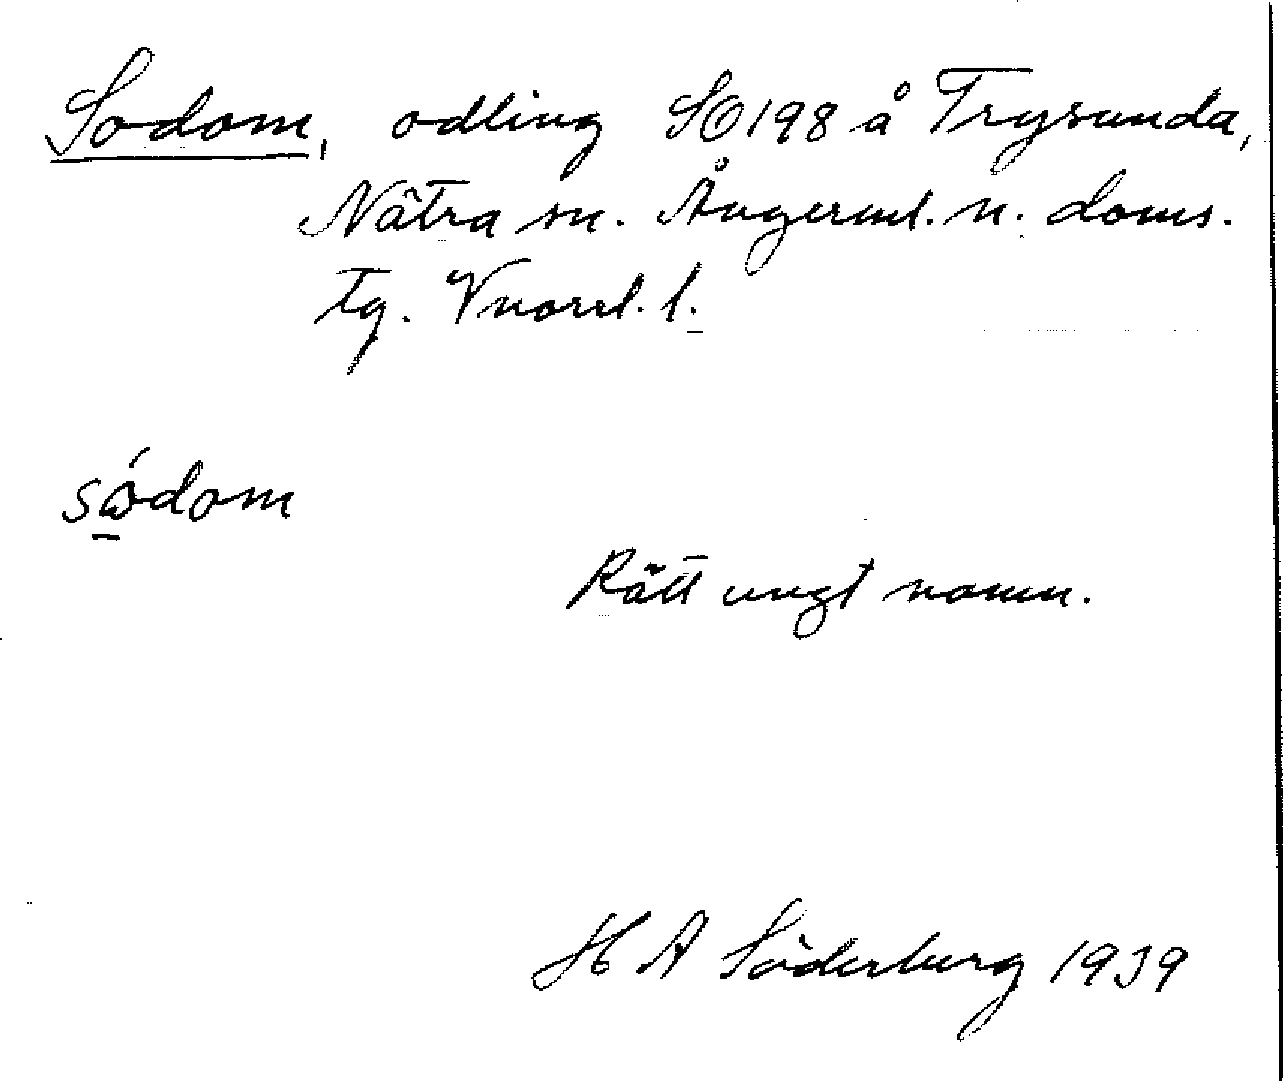 Sodom, odling SO198 å Trysunda,
Nätra sn. Ångerml. n. doms.
tg. Vnorrl. l.
sódom
Rätt ungt namn.
H A Söderberg 1939